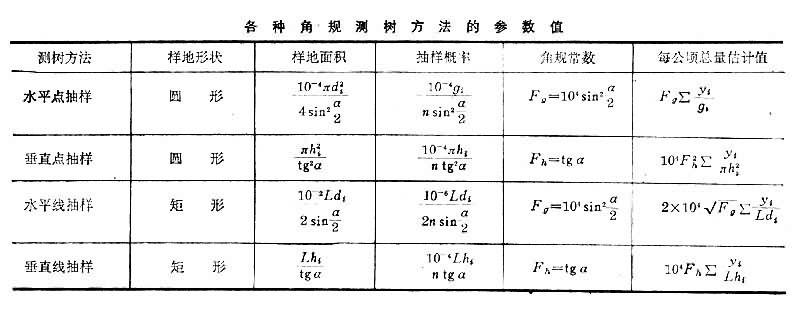 各种角规测树方法的参数值
测树方法 样地形状 样地面积 抽样概率 角规常数 每公顷总量估计值
水平点抽样 圆形 \frac{10^{-4}πd_i^2}{4\sin^2\frac{α}{2}} \frac{10^{-4}g_i}{n\sin^2\frac{α}{2}} F_g=10^4\sin^2\frac{α}{2} F_gΣ\frac{y_i}{g_i}
垂直点抽样 圆形 \frac{πh_i^2}{tg^2α} \frac{10^{-4}πh_i}{n tg^2α} F_h=tgα 10^4F_h^2Σ\frac{y_i}{πh_i^2}
水平线抽样 矩形 \frac{10^{-2}Ld_i}{2\sin\frac{α}{2}} \frac{10^{-6}Ld_i}{2n\sin\frac{α}{2}} F_g=10^4\sin^2\frac{α}{2} 2×10^4\sqrt{F_g}Σ\frac{y_i}{Ld_i}
垂直线抽样 矩形 \frac{Lh_i}{tgα} \frac{10^{-4}Lh_i}{n tgα} F_h=tgα 10^4F_hΣ\frac{y_i}{Lh_i}